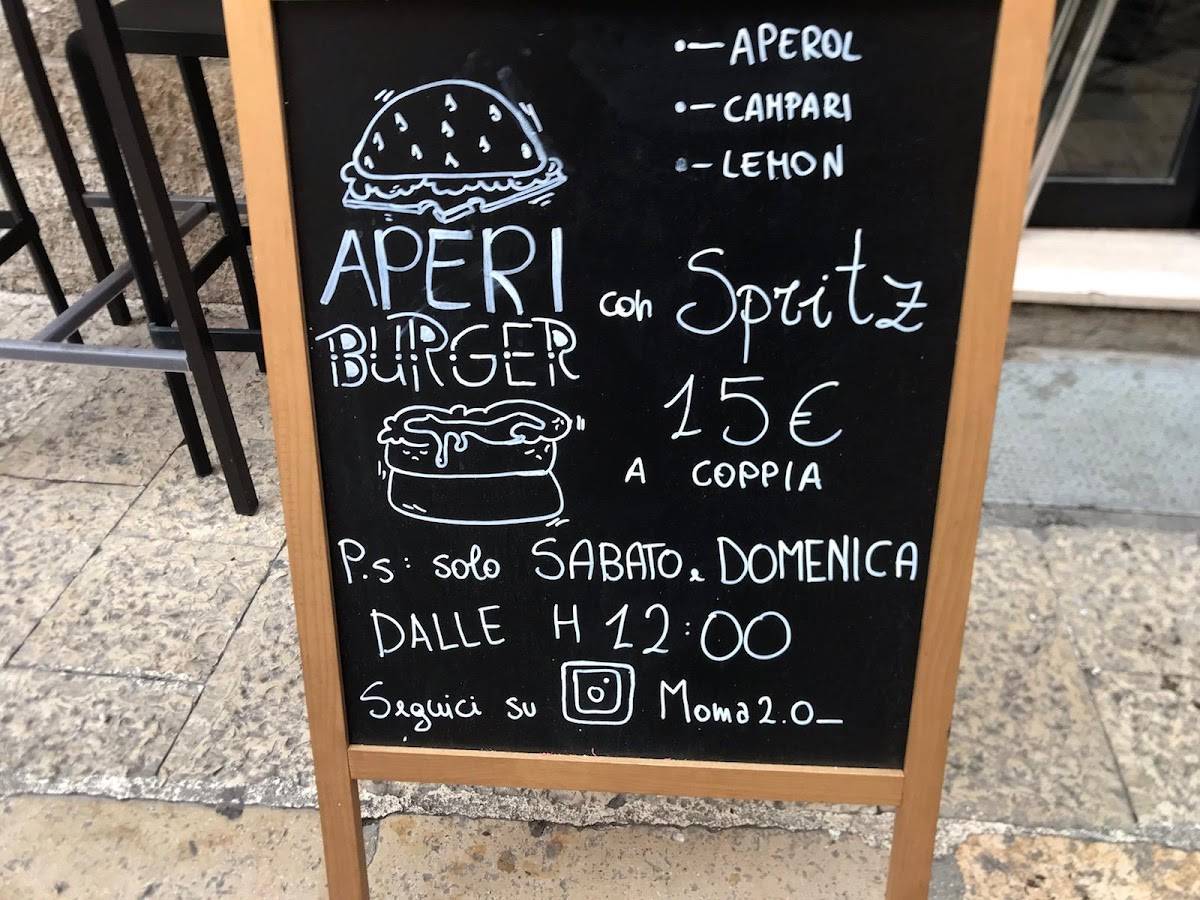 •— APEROL
•— CAMPARI
•— LEMON
APERI
BURGER
con Spritz
15€
A COPPIA
P.s: solo SABATO e DOMENICA
DALLE H 12:00
Seguici su Moma2.0_